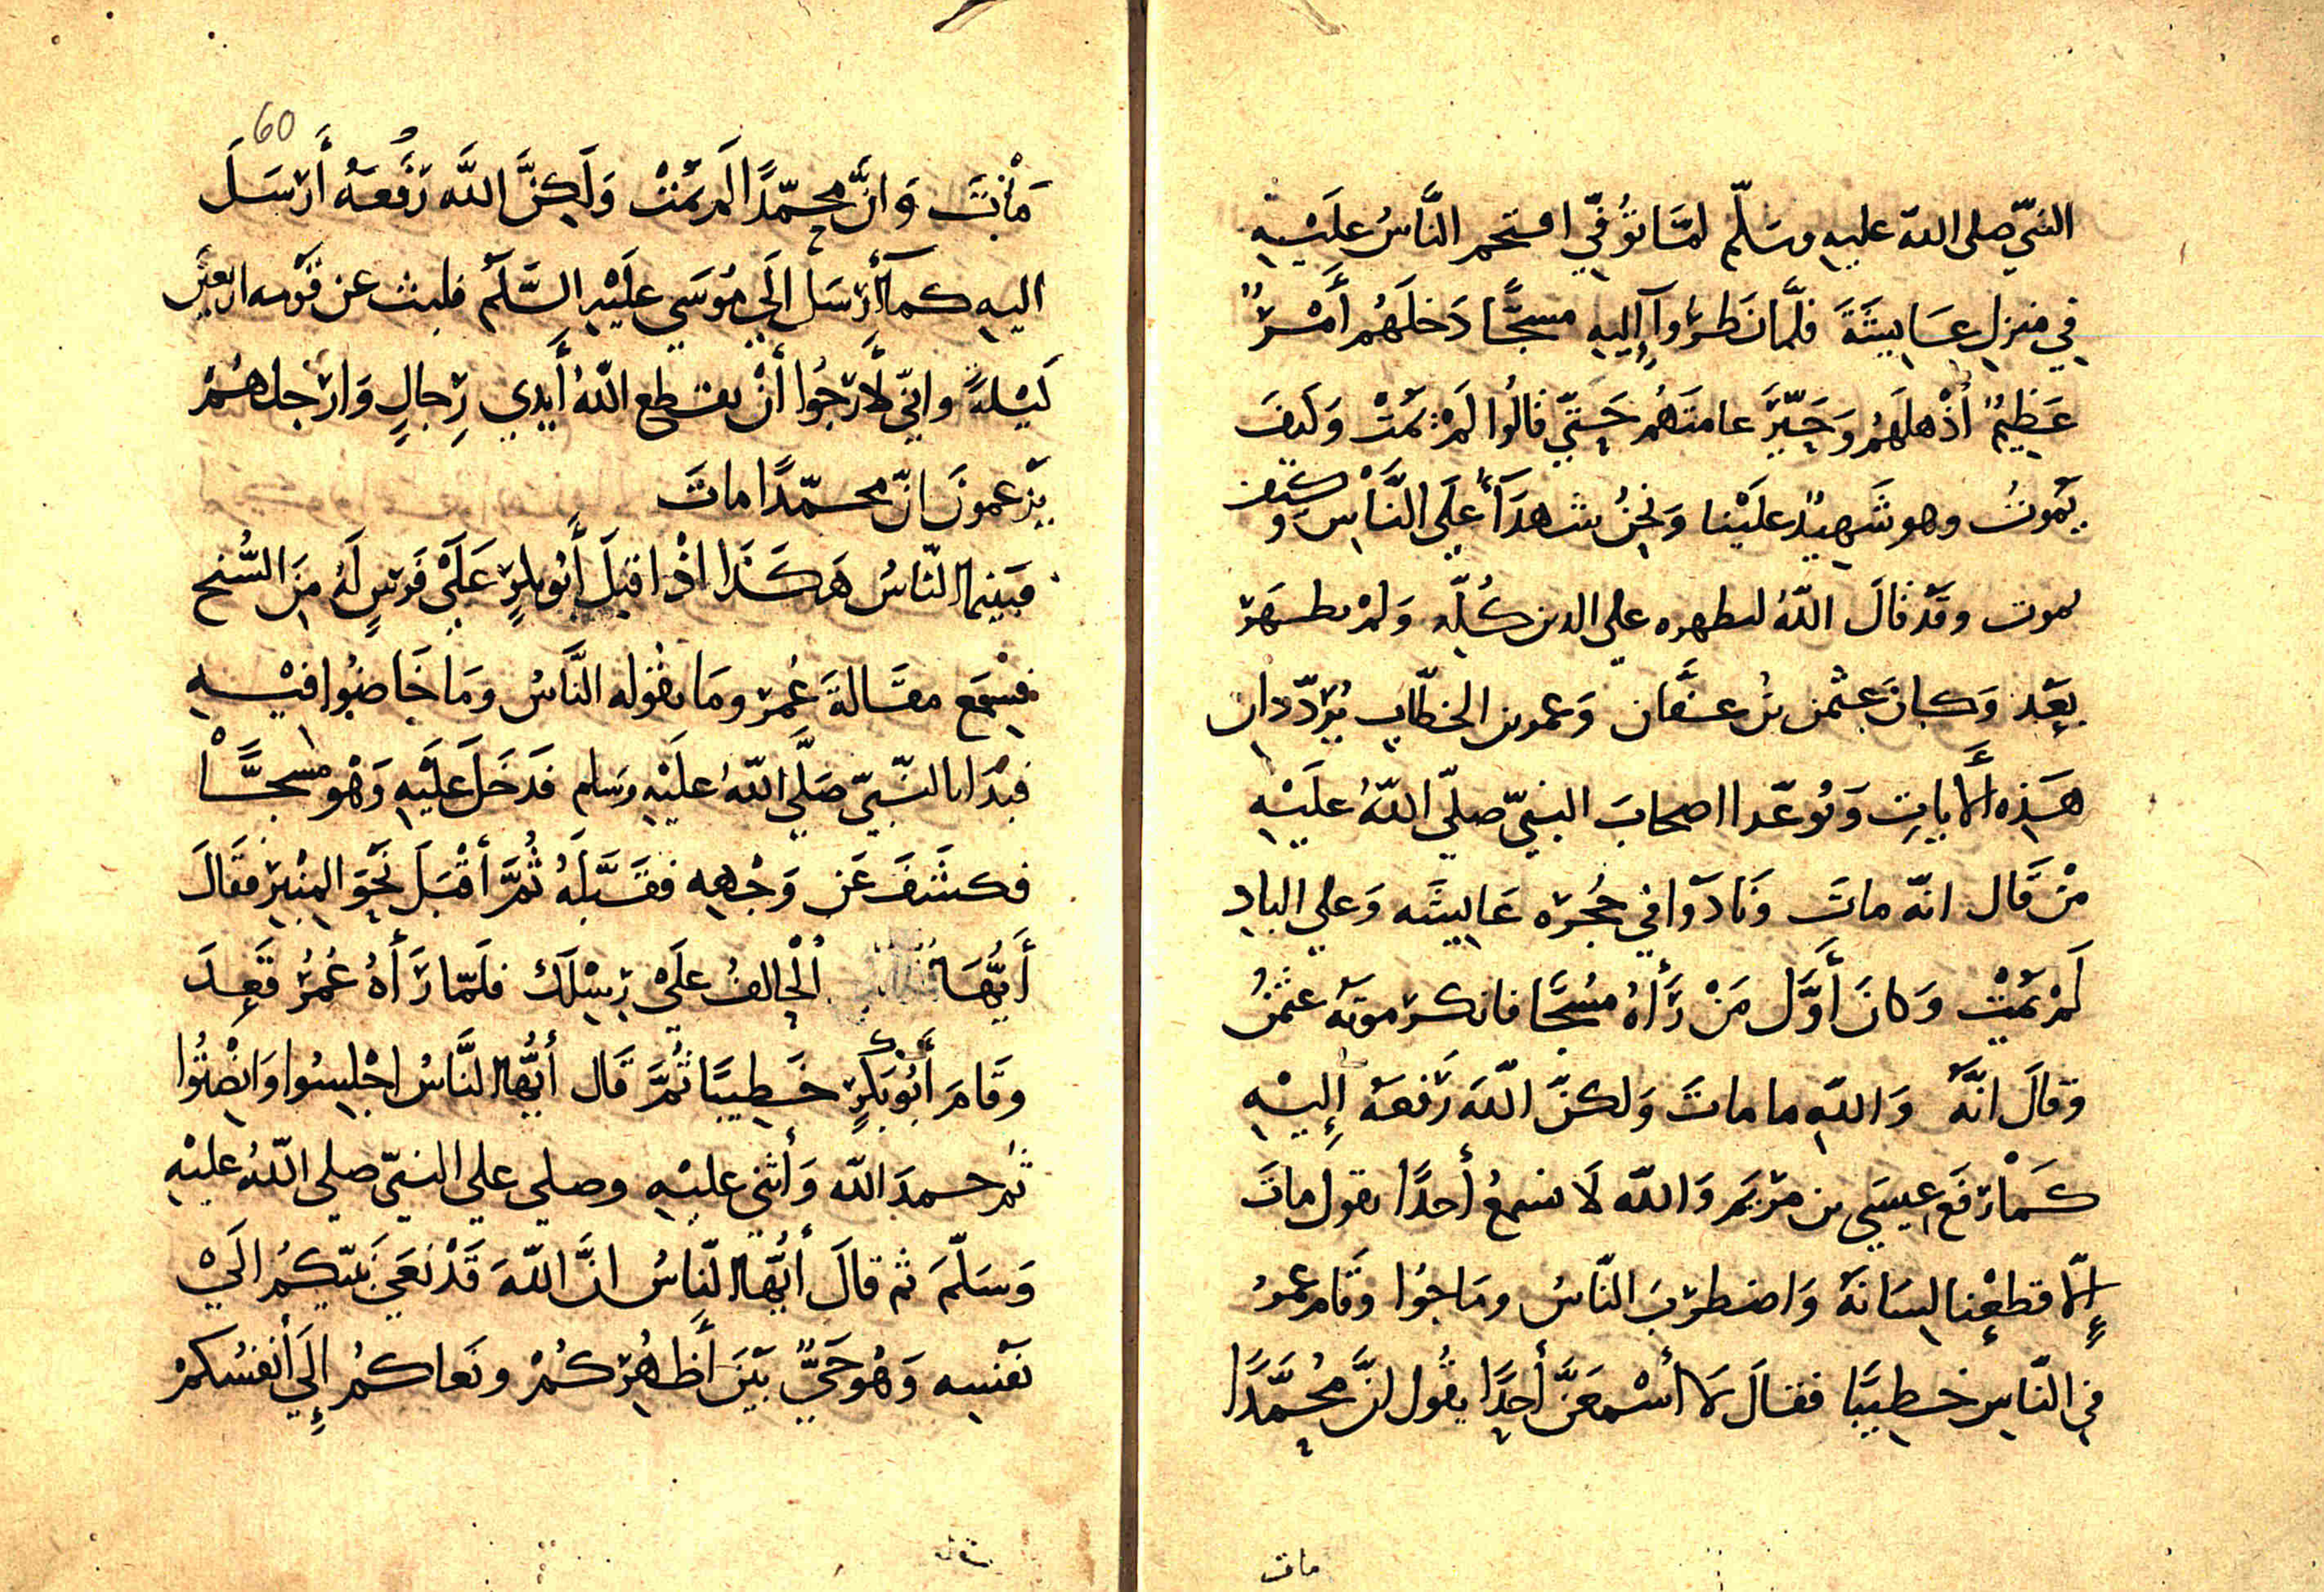 النبيّ صلى الله عليه وسَلّم لمّا تُوُفّي اقتحم النَّاسُ عَلَيْهِ
في منزل عَايِشَةَ فلمَّا نَظَرُوا إِليهِ مسجًّا دَخلَهُم أَمْرٌ
عَظِيمٌ أَذْهلَهُم وَحَيَّرَ عامتَهُم حَتّي قالُوا لَمْ يَمُتْ وَكَيفَ
يَمُوتُ وهو شَهِيدٌ علَيْنا وَنَحْنُ شهدَآءُ عَلَي النَّاسِ وكيف
يموت وقَدْ قالَ اللّهُ ليظهره علي الدين كُلِّهِ وَلمْ يظهَرْ
بَعْد وَكانَ عثمن بنُ عَفَّان وَعمر بن الخطّابِ يُردّدان
هَذِهِ الأَياتِ وَتوعّدا اصحابَ النبيّ صلّي اللّهُ علَيْهِ
مَنْ قَال انّه ماتَ وَنَادَوا في حُجره عَايِشَه وَعلي الباب
لَمْ يَمُتْ وَكانَ أَوَّل مَنْ رَأَاهُ مسُجًّا فانكر مَوتَهُ عثمنُ
وَقالَ انَّهُ وَاللّهِ ما ماتَ وَلكنّ اللّهَ رَفعَهُ إِليْهِ
كَمَا رَفَعَ عِيسَي بن مَرْيَم وَاللّه لَا نسمعُ أحدًا يقول ماتَ
إِلّا قطعْنا لِسَانَهُ وَاضطرَبَ النّاسُ ومَاجُوا وَقَام عمرُ
في النّاسِ خطِيبًا فقالَ لَا أَسْمعَنَّ أَحِدًا يقُول انّ مُحمَّدًا
مات
60
مَاتَ وَانَّ محمّدًا لَم يَمُتْ وَلَكِنَّ اللَّه رَفَعَهُ أَرْسَلَ
اليهِ كمآ أَرْسَل الَي مُوسَي عَلَيْهِ السَّلَم فلبث عن قَوْمه اربعين
لَيْلةً وانّي لَأَرْجُوا أَنْ يقطع اللّهُ أَيْدِي رِجالٍ وَارْجلهُمْ
يَزْعمونَ انّ محمّدًا ماتَ
فبَينما النّاسُ هَكَذَا اذْ اقبلَ أَبُو بكرٍ عَلَيْ فَرَسٍ لَهُ مِنَ السُّنح
فسَمِعَ مقَالةَ عُمَرَ ومَا يقُوله النَّاسُ وَمَا خَاضُوا فيْهِ
فبَدَا بالنّبيّ صَلَّي اللّهُ عَلَيْهِ وَسَلم فَدَخَلَ عَلَيْهِ وَهْو مسجَّا
فكشَفَ عَن وَجْهِهِ فقَبَّلَهُ ثُمَّ أَقْبَلَ نَحْوَ المِنْبَرِ فقَالَ
أَيُّهَا الْحَالِفُ عَلَيْ رِسْلِك فلَمّا رَأَاهُ عُمَرُ قَعَدَ
وقَامَ أَبُو بَكْرٍ خَطِيبًا ثُمَّ قَال أَيُّهَا النَّاسُ اجْلِسُوا وَانْصِتُوا
ثُم حمدَ اللّه وَأَثني عليْهِ وصلي علي النبيّ صلي اللّهُ عليْهِ
وَسَلّمَ ثم قالَ أيُّهَا النّاسُ انَّ اللّهَ قَدْ نَعَي نَبيّكُم الَيْ
نَفْسِهِ وَهُو حَيٌّ بَيْنَ أَظهُرِكُمْ ونَعاكُم إِلَي أَنفسُكمْ